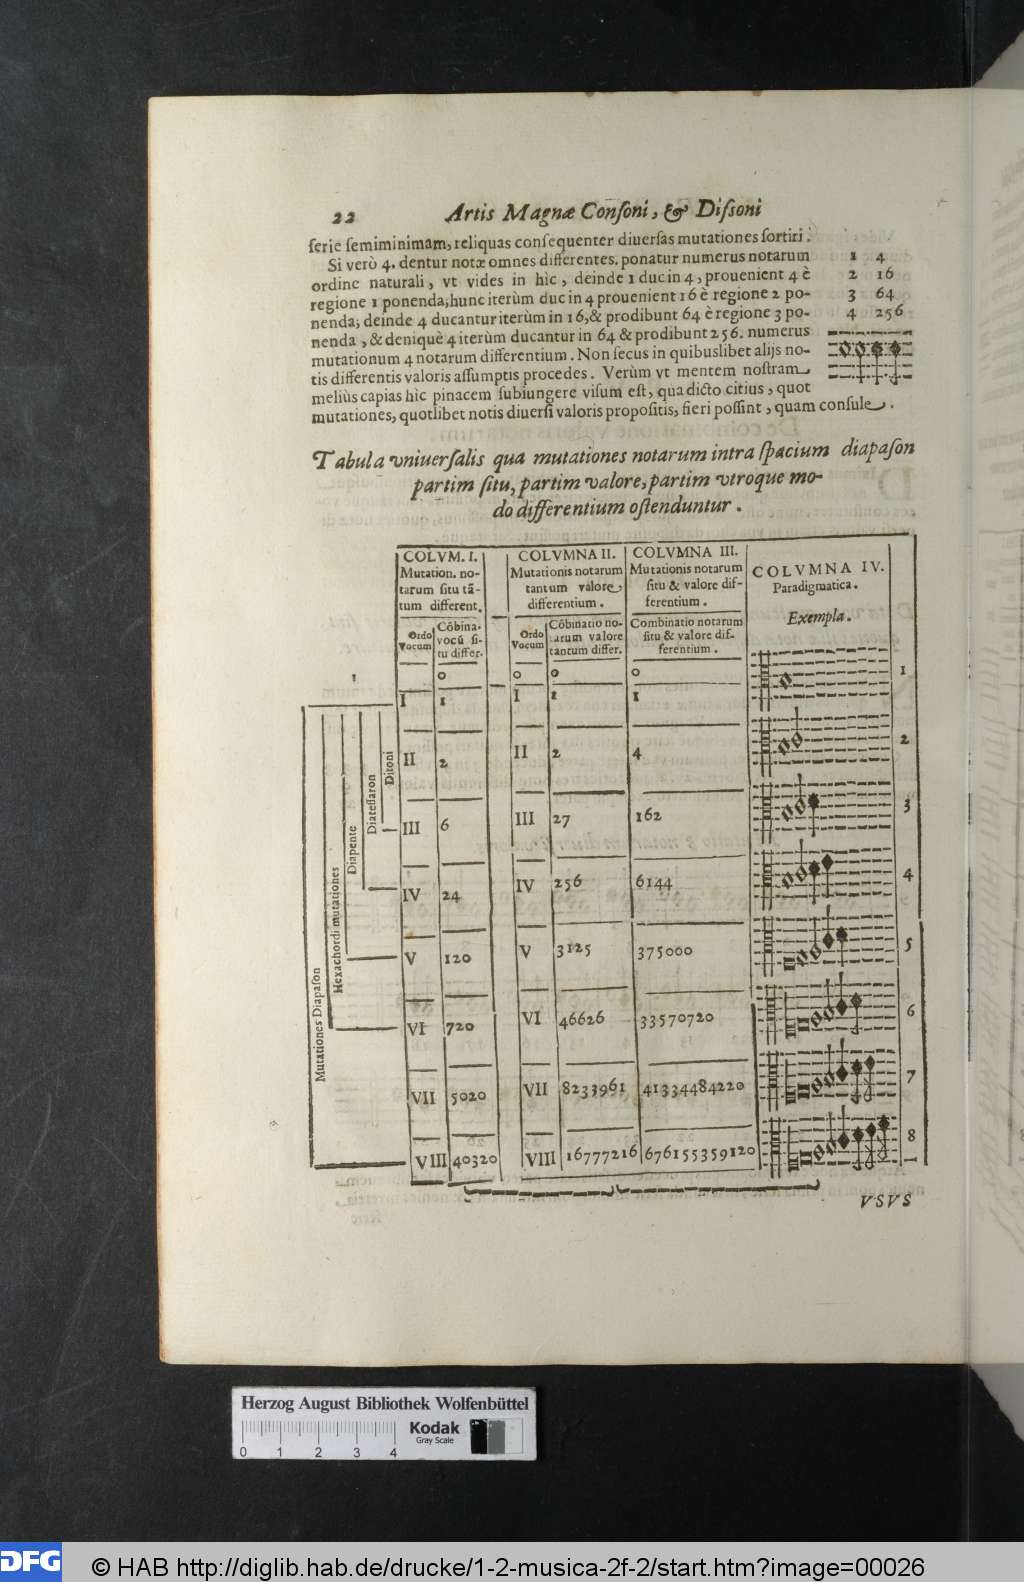 22 Artis Magnæ Consoni, & Dissoni
serie semiminimam, reliquas consequenter diuersas mutationes sortiri.
Si verò 4. dentur notæ omnes differentes, ponatur numerus notarum
ordine naturali, vt vides in hìc, deinde 1 duc in 4, prouenient 4 è
regione 1 ponenda; hunc iterùm duc in 4 prouenient 16 è regione 2 po-
nenda; deinde 4 ducantur iterùm in 16, & prodibunt 64 è regione 3 po-
nenda, & deniquè 4 iterùm ducantur in 64 & prodibunt 256. numerus
mutationum 4 notarum differentium. Non secus in quibuslibet alijs no-
tis differentis valoris assumptis procedes. Verùm vt mentem nostram
meliùs capias hìc pinacem subiungere visum est, qua dicto citius, quot
mutationes, quotlibet notis diuersi valoris propositis, fieri possint, quam consule.
1 4
2 16
3 64
4 256
Tabula vniuersalis qua mutationes notarum intra spacium diapason
partim situ, partim valore, partim vtroque mo-
do differentium ostenduntur.
COLVM. I.
Mutation. no-
tarum situ tã-
tum different.
Ordo
Vocum
Côbina.
vocũ si-
tu differ.
COLVMNA II.
Mutationis notarum
tantum valore
differentium.
Ordo
Vocum
Côbinatio no-
tarum valore
tantum differ.
COLVMNA III.
Mutationis notarum
situ & valore dif-
ferentium.
Combinatio notarum
situ & valore dif-
ferentium.
COLVMNA IV.
Paradigmatica.
Exempla.
0 0 0 0
I 1 I 1 1 1
II 2 II 2 4 2
III 6 III 27 162 3
IV 24 IV 256 6144 4
V 120 V 3125 375000 5
VI 720 VI 46626 33570720 6
VII 5020 VII 8233961 41334484220 7
VIII 40320 VIII 16777216 676155359120 8
Mutationes Diapason
Hexachordi mutationes
Diapente
Diatessaron
Ditoni
VSVS
Herzog August Bibliothek Wolfenbüttel
Kodak
Gray Scale
0 1 2 3 4
DFG © HAB http://diglib.hab.de/drucke/1-2-musica-2f-2/start.htm?image=00026